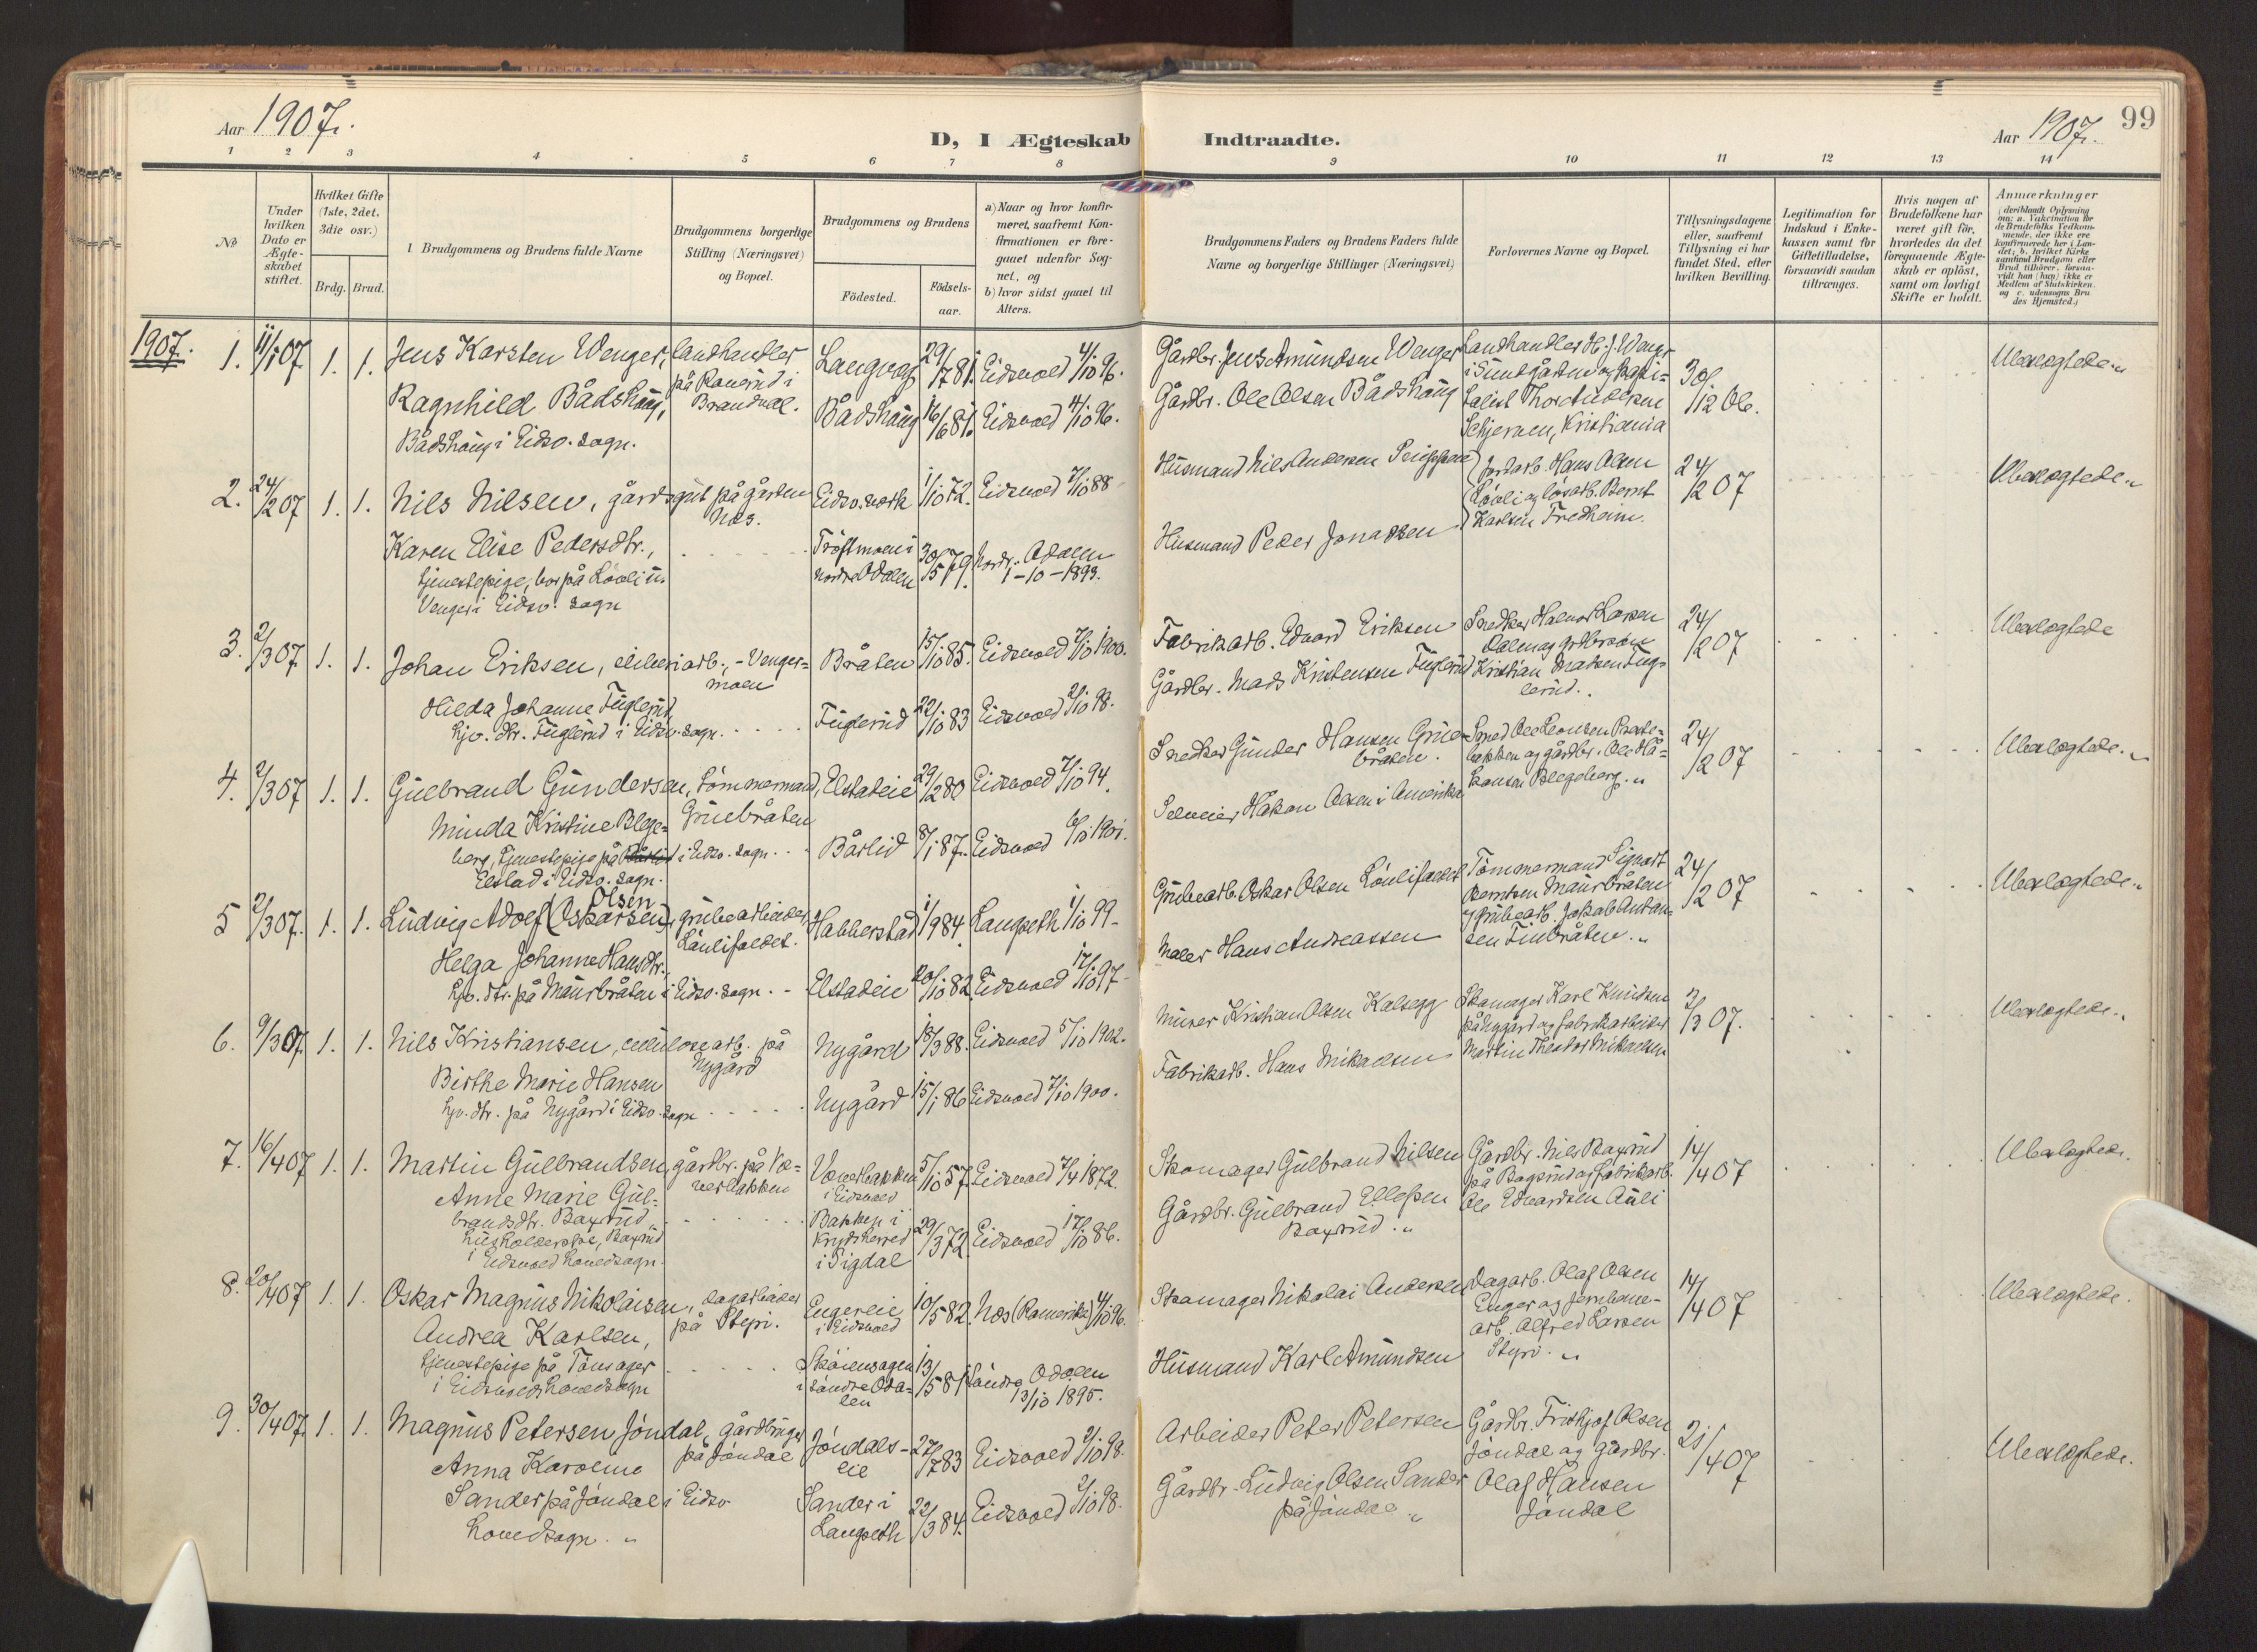 99
Aar 1907.
D, I Ægteskab Indtraadte.
Aar 1907.
1 2 3 4 5 6 7 8 9 10 11 12 13 14
No
Under hvilken Dato er Ægteskabet stiftet.
Hvilket Gifte (1ste, 2det, 3die osv.)
Brdg. Brud.
Brudgommens og Brudens fulde Navne
Brudgommens borgerlige Stilling (Næringsvei) og Bopæl.
Brudgommens og Brudens
Födested.
Födselsaar.
a) Naar og hvor konfirmeret, saafremt Konfirmationen er foregaaet udenfor Sognet, og
b) hvor sidst gaaet til Alters.
Brudgommens Faders og Brudens Faders fulde Navne og borgerlige Stillinger (Næringsvei)
Forlovernes Navne og Bopæl.
Tillysningsdagene eller, saafremt Tillysning ei har fundet Sted, efter hvilken Bevilling.
Legitimation for Indskud i Enkekassen samt for Giftetilladelse, forsaavidt saadan tiltrænges.
Hvis nogen af Brudefolkene har været gift för, hvorledes da det foregaaende Ægteskab er oplöst, samt om lovligt Skifte er holdt.
Anmærkninger
(deriblandt Oplysning om: a. Vakcination for de Brudefolks Vedkommende, der ikke ere konfirmerede her i Landet; b. hvilket Kirkesamfund Brudgom eller Brud tilhörer, forsaavidt han (hun) ikke er Medlem af Statskirken. og c. udensogns Brudes Hjemsted.)
1907.
1. 11/1 07 1. 1. Jens Karsten Wenger, landhandler på Rouerud i Brandval. 29/7 81. Eidsvold 4/10 96. Gårdbr. Jens Amundsen Wenger
Ragnhild Bådshaug, Bådshaug 16/6 81. Eidsvold 4/10 96. Gårdbr. Ole Olsen Bådshaug
Bådshaug i Eidsv. sogn.
Schjerven, Kristiania
30/12 06. Ubeslægtede
2. 24/2 07 1. 1. Nils Nilsen, gårdsgut på gården Næs. Eidsv. verk 1/10 72. Eidsvold 7/10 88 Husmand Nils Andersen
Jordarb. Hans Olsen Lövli og lösarb. Bernt Karlsen Fredheim.
24/2 07 Ubeslægtede
Karen Elise Pedersdtr., Tröftmoen i nordre Odalen 30/5 79. Nordr. Odalen 1-10-1893. Husmand Peder Jonassen
tjenestepige, bor på Lövli u. Venger i Eidsv. sogn
3. 2/3 07 1. 1. Johan Eriksen, sliberiarb., - Vengermoen Bråten 15/10 85. Eidsvold 7/10 1900. Fabrikarb. Edvard Eriksen
Snedker Halvor Larsen Dalen og grdbr. Kristian Madsen Fuglerud.
24/2 07 Ubeslægtede
Hilda Johanne Fuglerud Fuglerud 22/10 83 Eidsvold 2/10 98. Gårdbr. Mads Kristensen Fuglerud
hjv. dtr. Fuglerud i Eidsv. sogn
4. 2/3 07 1. 1. Gulbrand Gundersen, tömmermand, Gruebråten Elstadeie 29/2 80 Eidsvold 7/10 94. Snedker Gunder Hansen Gruebråten.
Smed Ole Leonsen og gårdbr. Ole Håkonsen Blegeberg.
24/2 07 Ubeslægtede.
Minda Kristine Blegeberg, tjenestepige på Bårlid i Eidsv. sogn Bårlid 8/1 87. Eidsvold 6/10 1901. Selveier Håkon Olsen i Amerika
Elstad i Eidsv. sogn.
5 2/3 07. 1. 1. Ludvig Adolf (Oskarsen) Olsen, grubearbeider Lövlifaldet. Habberstad 1/9 84. Langseth 1/10 99 Grubearb. Oskar Olsen Lövlifaldet
Tömmermand Sigvart Berntsen Maurbråten og grubearb. Jakob Antonsen Finbråten.
24/2 07 Ubeslægtede.
Helga Johanne Hansdtr. Elstadeie 20/10 82. Eidsvold 17/10 97 Maler Hans Andreassen
hjv. dtr. på Maurbråten i Eidsv. sogn.
6. 9/3 07. 1. 1. Nils Kristiansen, cellulosearb. på Nygård Nygård 18/3 88. Eidsvold 5/10 1902. Murer Kristian Olsen Kalsegg
Skomager Karl Knudsen på Nygård og fabrikarbeider Martin Theodor Mikaelsen
3/3 07. Ubeslægtede.
Birthe Marie Hansen Nygård 15/1 86 Eidsvold 7/10 1900. Fabrikarb. Hans Mikaelsen
hjv. dtr. på Nygård i Eidsv. sogn
7. 16/4 07 1. 1. Martin Gulbrandsen, gårdbr. på Væverbakken i Eidsvold 5/10 57. Eidsvold 7/4 1872. Skomager Gulbrand Nilsen
Gårdbr. Nils Baxrud på Baxrud og fabrikarb. Ole Edvardsen Auli
14/4 07 Ubeslægtede.
Anne Marie Gulbrandsdtr. Baxrud Bakken i Krydsherred i Sigdal 29/3 72. Eidsvold 17/10 86. Gårdbr. Gulbrand Ellefsen Baxrud.
husholderske, Baxrud i Eidsvold hovedsogn.
8. 20/4 07 1. 1. Oskar Magnus Nikolaisen, dagarbeider på Styri. Engereie i Eidsvold 10/5 82. Næs (Romerike) 4/10 96. Skomager Nikolai Andersen
Dagarb. Olaf Olsen Enger og jernbanearb. Alfred Larsen Styri.
14/4 07 Ubeslægtede.
Andrea Karlsen, i söndre Odalen 13/5 81 Söndre Odalen 13/10 1895. Husmand Karl Amundsen
tjenestepige på Tönsager i Eidsvolds hovedsogn
9. 30/4 07. 1. 1. Magnus Petersen Jöndal, gårdbruger på Jöndal Jöndalseie 27/7 83 Eidsvold 2/10 98. Arbeider Peter Petersen
Gårdbr. Fridtjof Olsen Jöndal og gårdbr. Olaf Hansen Jöndal
21/4 07 Ubeslægtede.
Anna Karoline Sander på Jöndal i Eidsv. hovedsogn. Sander i Langseth 22/3 84. Eidsvold 2/10 98. Gårdbr. Ludvig Olsen Sander på Jöndal